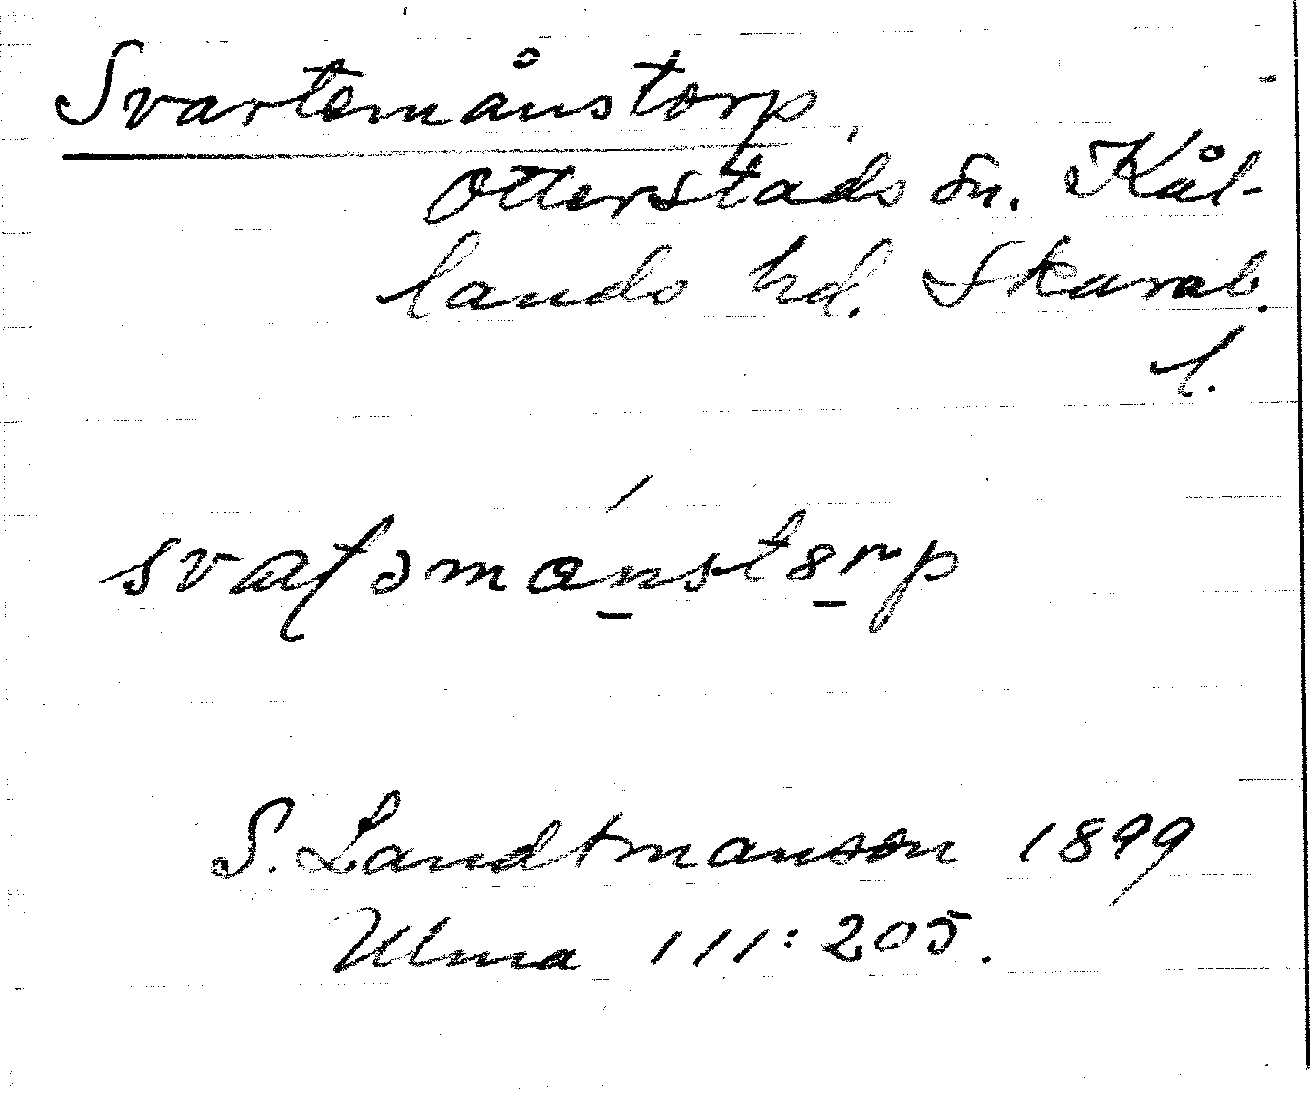 Svartemånstorp,
Otterstads sn. Kål-
lands hd. Skarab.
l.
S. Landtmanson 1899
Ulma 111:205.